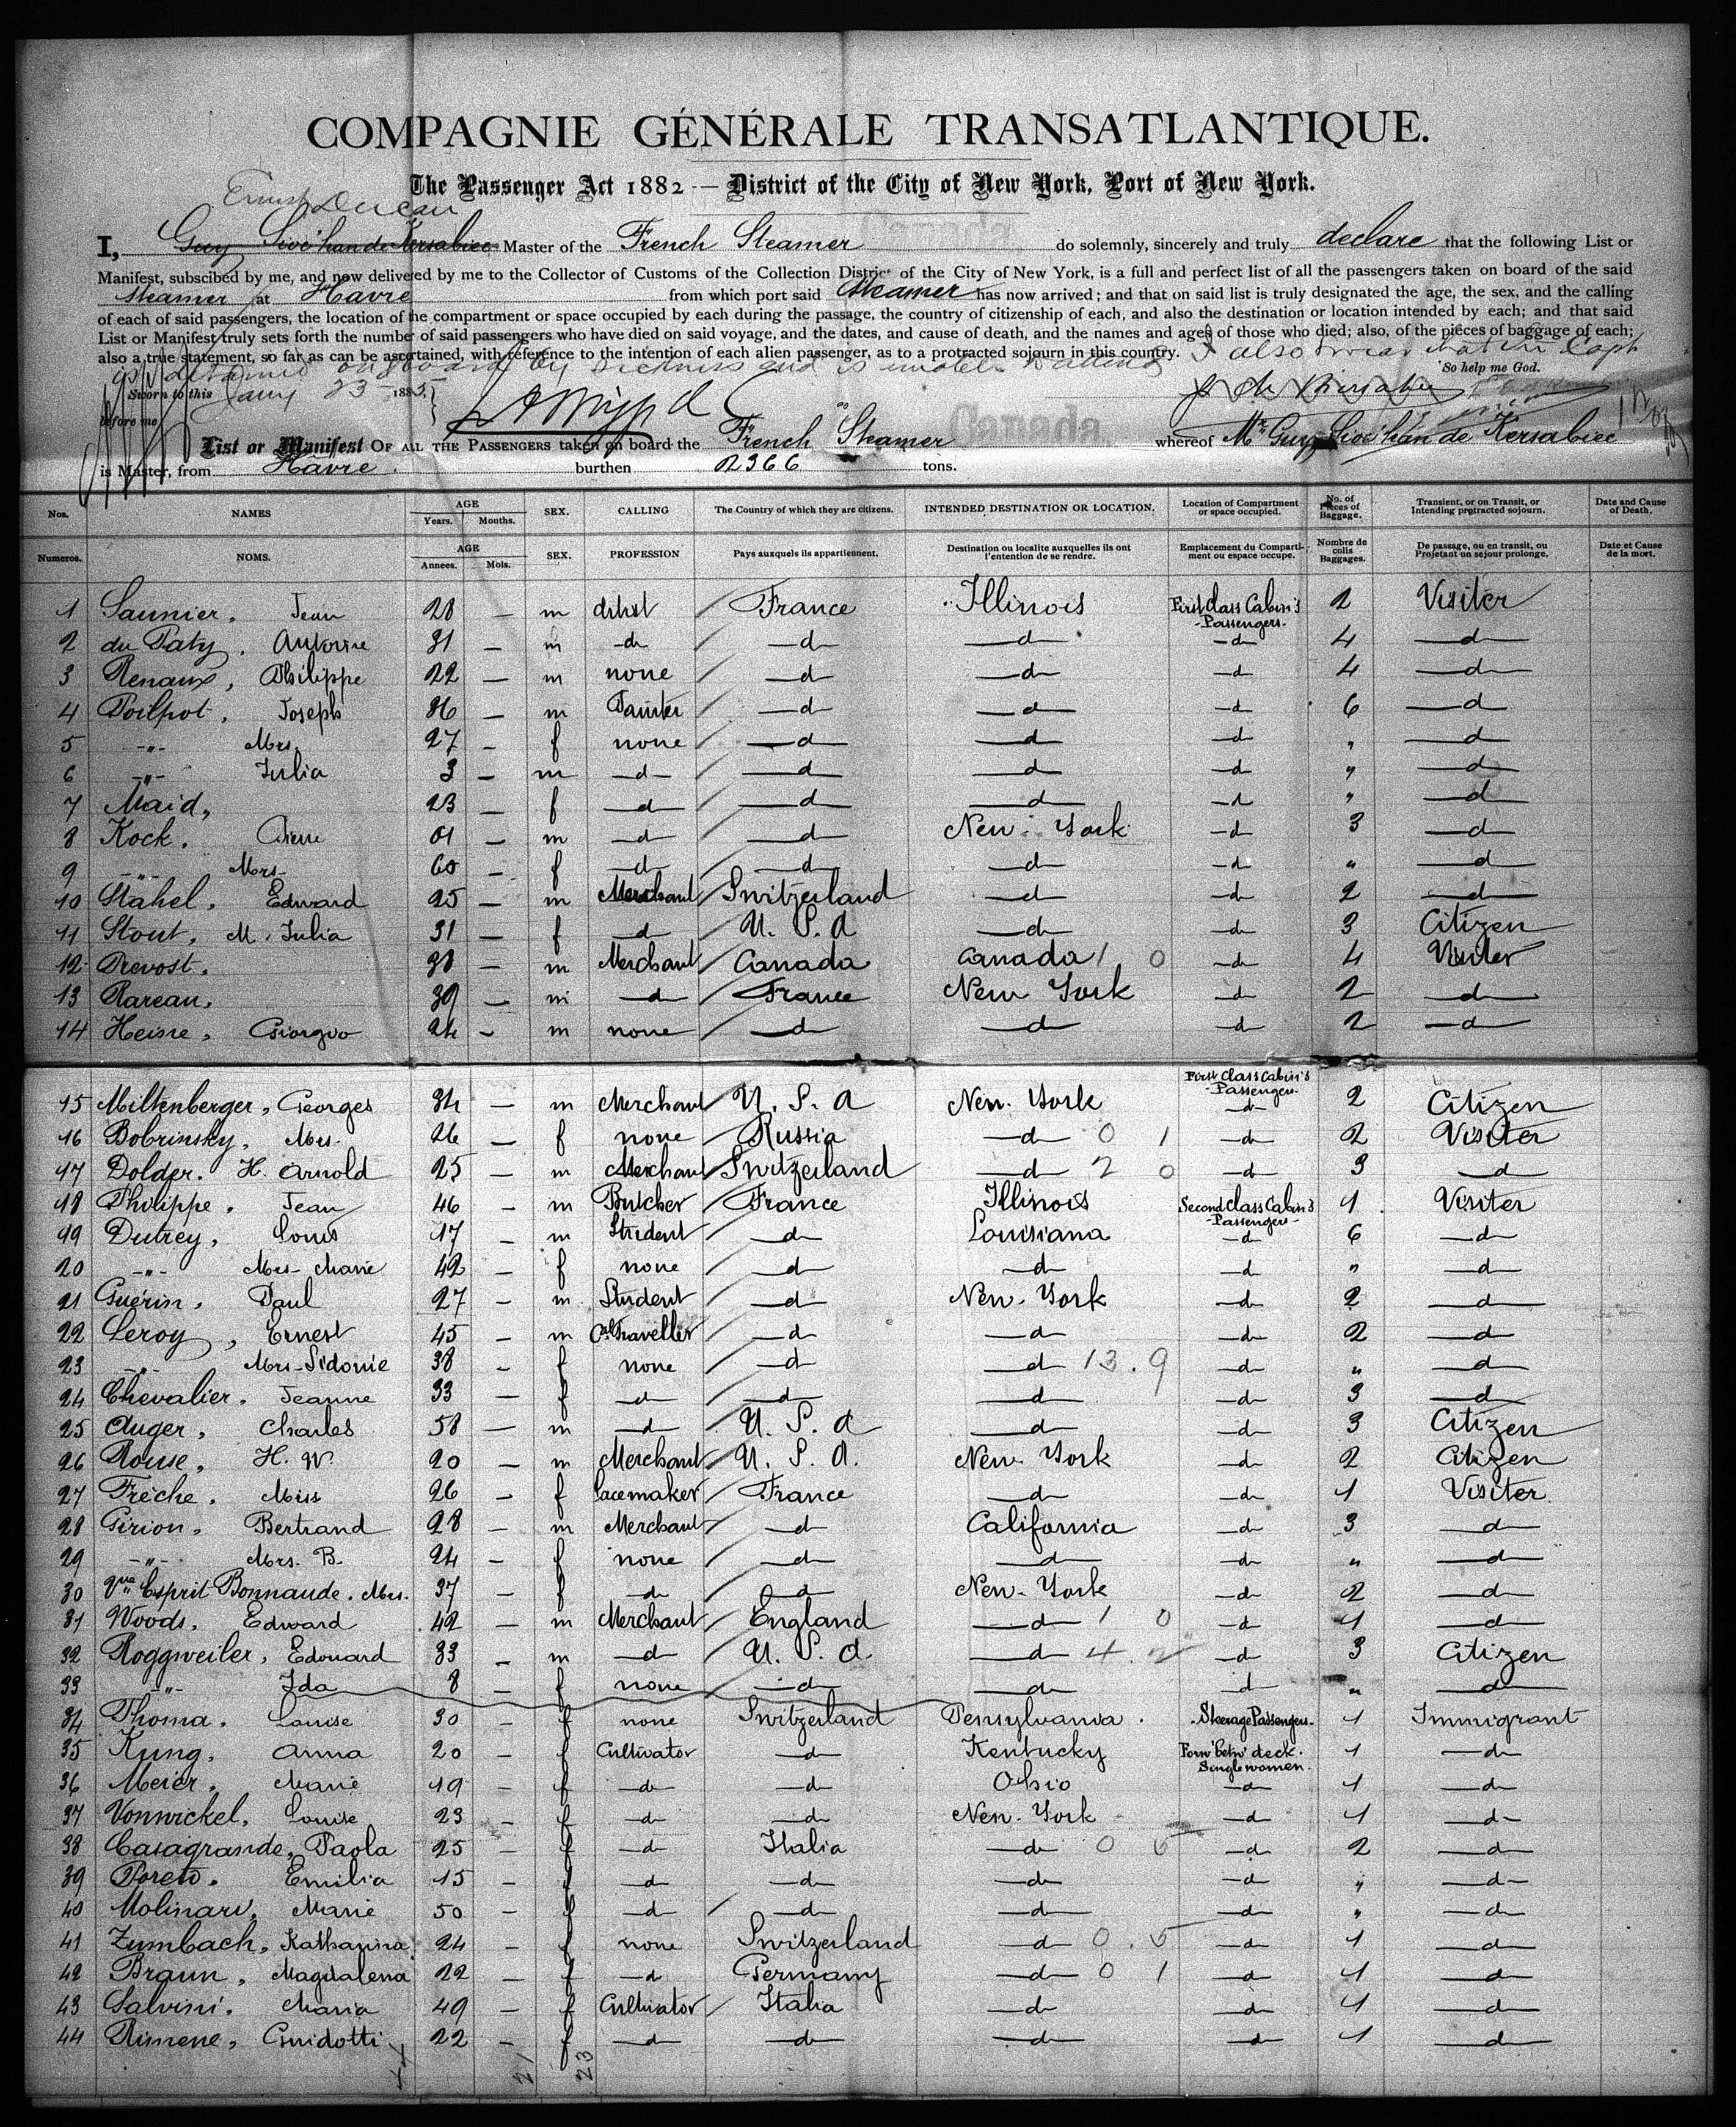 COMPAGNIE GÉNÉRALE TRANSATLANTIQUE.
The Passenger Act 1882 — District of the City of New York, Port of New York.
Ernest Ducau
I, Guy Sioc'han de Kersabiec Master of the French Steamer Canada do solemnly, sincerely and truly declare that the following List or
Manifest, subscibed by me, and now delivered by me to the Collector of Customs of the Collection District of the City of New York, is a full and perfect list of all the passengers taken on board of the said
Steamer at Havre from which port said Steamer has now arrived; and that on said list is truly designated the age, the sex, and the calling
of each of said passengers, the location of the compartment or space occupied by each during the passage, the country of citizenship of each, and also the destination or location intended by each; and that said
List or Manifest truly sets forth the number of said passengers who have died on said voyage, and the dates, and cause of death, and the names and ages of those who died; also, of the pieces of baggage of each;
also a true statement, so far as can be ascertained, with reference to the intention of each alien passenger, as to a protracted sojourn in this country. I also swear that the Capt
is detained on board by sickness and is unable So help me God.
Sworn to this Jany 23 1885
before me
List or Manifest OF ALL THE PASSENGERS taken on board the French Steamer Canada whereof Mr. Guy Sioc'han de Kersabiec
is Master, from Havre. burthen 2366 tons.
Nos. NAMES AGE Years. Months. SEX. CALLING The Country of which they are citizens. INTENDED DESTINATION OR LOCATION. Location of Compartment or space occupied. No. of Pieces of Baggage. Transient, or on Transit, or Intending protracted sojourn. Date and Cause of Death.
Numeros. NOMS. AGE Annees. Mois. SEX. PROFESSION Pays auxquels ils appartiennent. Destination ou localite auxquelles ils ont l'entention de se rendre. Emplacement du Compartiment ou espace occupe. Nombre de colis Baggages. De passage, ou en transit, ou Projetant un sejour prolonge. Date et Cause de la mort.
1 Saunier, Jean 28 — m artist France Illinois First Class Cabin's Passengers. 2 Visiter
2 du Paty, Antoine 31 — m —d— —d— —d— —d— 4 —d—
3 Renaux, Philippe 22 — m none —d— —d— —d— 4 —d—
4 Poilpot, Joseph 36 — m Painter —d— —d— —d— 6 —d—
5 —"— Mrs. 27 — f none —d— —d— —d— " —d—
6 —"— Julia 3 — m —d— —d— —d— —d— " —d—
7 Maid, 23 — f —d— —d— —d— —d— " —d—
8 Kock, Pierre 61 — m —d— —d— New-York —d— 3 —d—
9 —"— Mrs. 60 — f —d— —d— —d— —d— " —d—
10 Stahel, Edward 25 — m Merchant Switzerland —d— —d— 2 —d—
11 Stout, M. Julia 31 — f —d— U. S. A —d— —d— 3 Citizen
12 Prevost. 38 — m Merchant Canada Canada 1 0 —d— 4 Visiter
13 Rareau, 39 — m —d— France New York —d— 2 —d—
14 Heisre, Giorgio 24 — m none —d— —d— —d— 2 —d—
15 Miltenberger, Georges 34 — m Merchant U. S. A New-York First Class Cabin's Passengers. —d— 2 Citizen
16 Bobrinsky, Mrs. 26 — f none Russia —d— 0 1 —d— 2 Visiter
17 Dolder. H. Arnold 25 — m Merchant Switzerland —d— 2 0 —d— 3 —d—
18 Philippe, Jean 46 — m Butcher France Illinois Second Class Cabin's Passengers 1 Visiter
19 Dutrey, Louis 17 — m Student —d— Louisiana —d— 6 —d—
20 —"— Mrs Marie 42 — f none —d— —d— —d— " —d—
21 Guérin, Paul 27 — m Student —d— New-York —d— 2 —d—
22 Leroy, Ernest 45 — m Cal Traveller —d— —d— —d— 2 —d—
23 —"— Mrs-Sidonie 38 — f none —d— —d— 13.9 —d— " —d—
24 Chevalier. Jeanne 33 — f —d— —d— —d— —d— 3 —d—
25 Auger, Charles 58 — m —d— U. S. A —d— —d— 3 Citizen
26 Rouse, H. W. 20 — m Merchant U. S. A. New-York —d— 2 Citizen
27 Frèche. Miss 26 — f Lacemaker France —d— —d— 1 Visiter
28 Girion, Bertrand 28 — m Merchant —d— California —d— 3 —d—
29 —"— Mrs. B. 24 — f none —d— —d— —d— " —d—
30 Vve Esprit Bonnaude. Mrs. 37 — f —d— —d— New-York —d— 2 —d—
31 Woods. Edward 42 — m Merchant England —d— 1 0 —d— 1 —d—
32 Roggweiler, Edouard 33 — m —d— U. S. A. —d— 4.2 —d— 3 Citizen
33 —"— Ida 8 — f none —d— —d— —d— " —d—
34 Thoma. Louise 30 — f none Switzerland Pensylvania. Steerage Passengers. 1 Immigrant
35 Kung, Anna 20 — f Cultivator —d— Kentucky Forw' betw' deck. Single women. 1 —d—
36 Meier, Marie 19 — f —d— —d— Ohio —d— 1 —d—
37 Vonwickel, Louise 23 — f —d— —d— New-York —d— 1 —d—
38 Casagrande, Paola 25 — f —d— Italia —d— 0 5 —d— 2 —d—
39 Poreto. Emilia 15 — f —d— —d— —d— —d— " —d—
40 Molinari, Marie 50 — f —d— —d— —d— —d— " —d—
41 Zumbach, Katharina 24 — f none Switzerland —d— 0.5 —d— 1 —d—
42 Braun, Magdalena 22 — f —d— Germany —d— 0 1 —d— 1 —d—
43 Salvini. Maria 49 — f Cultivator Italia —d— —d— 1 —d—
44 Rimene, Guidotti 22 — f —d— —d— —d— —d— 1 —d—
21 23